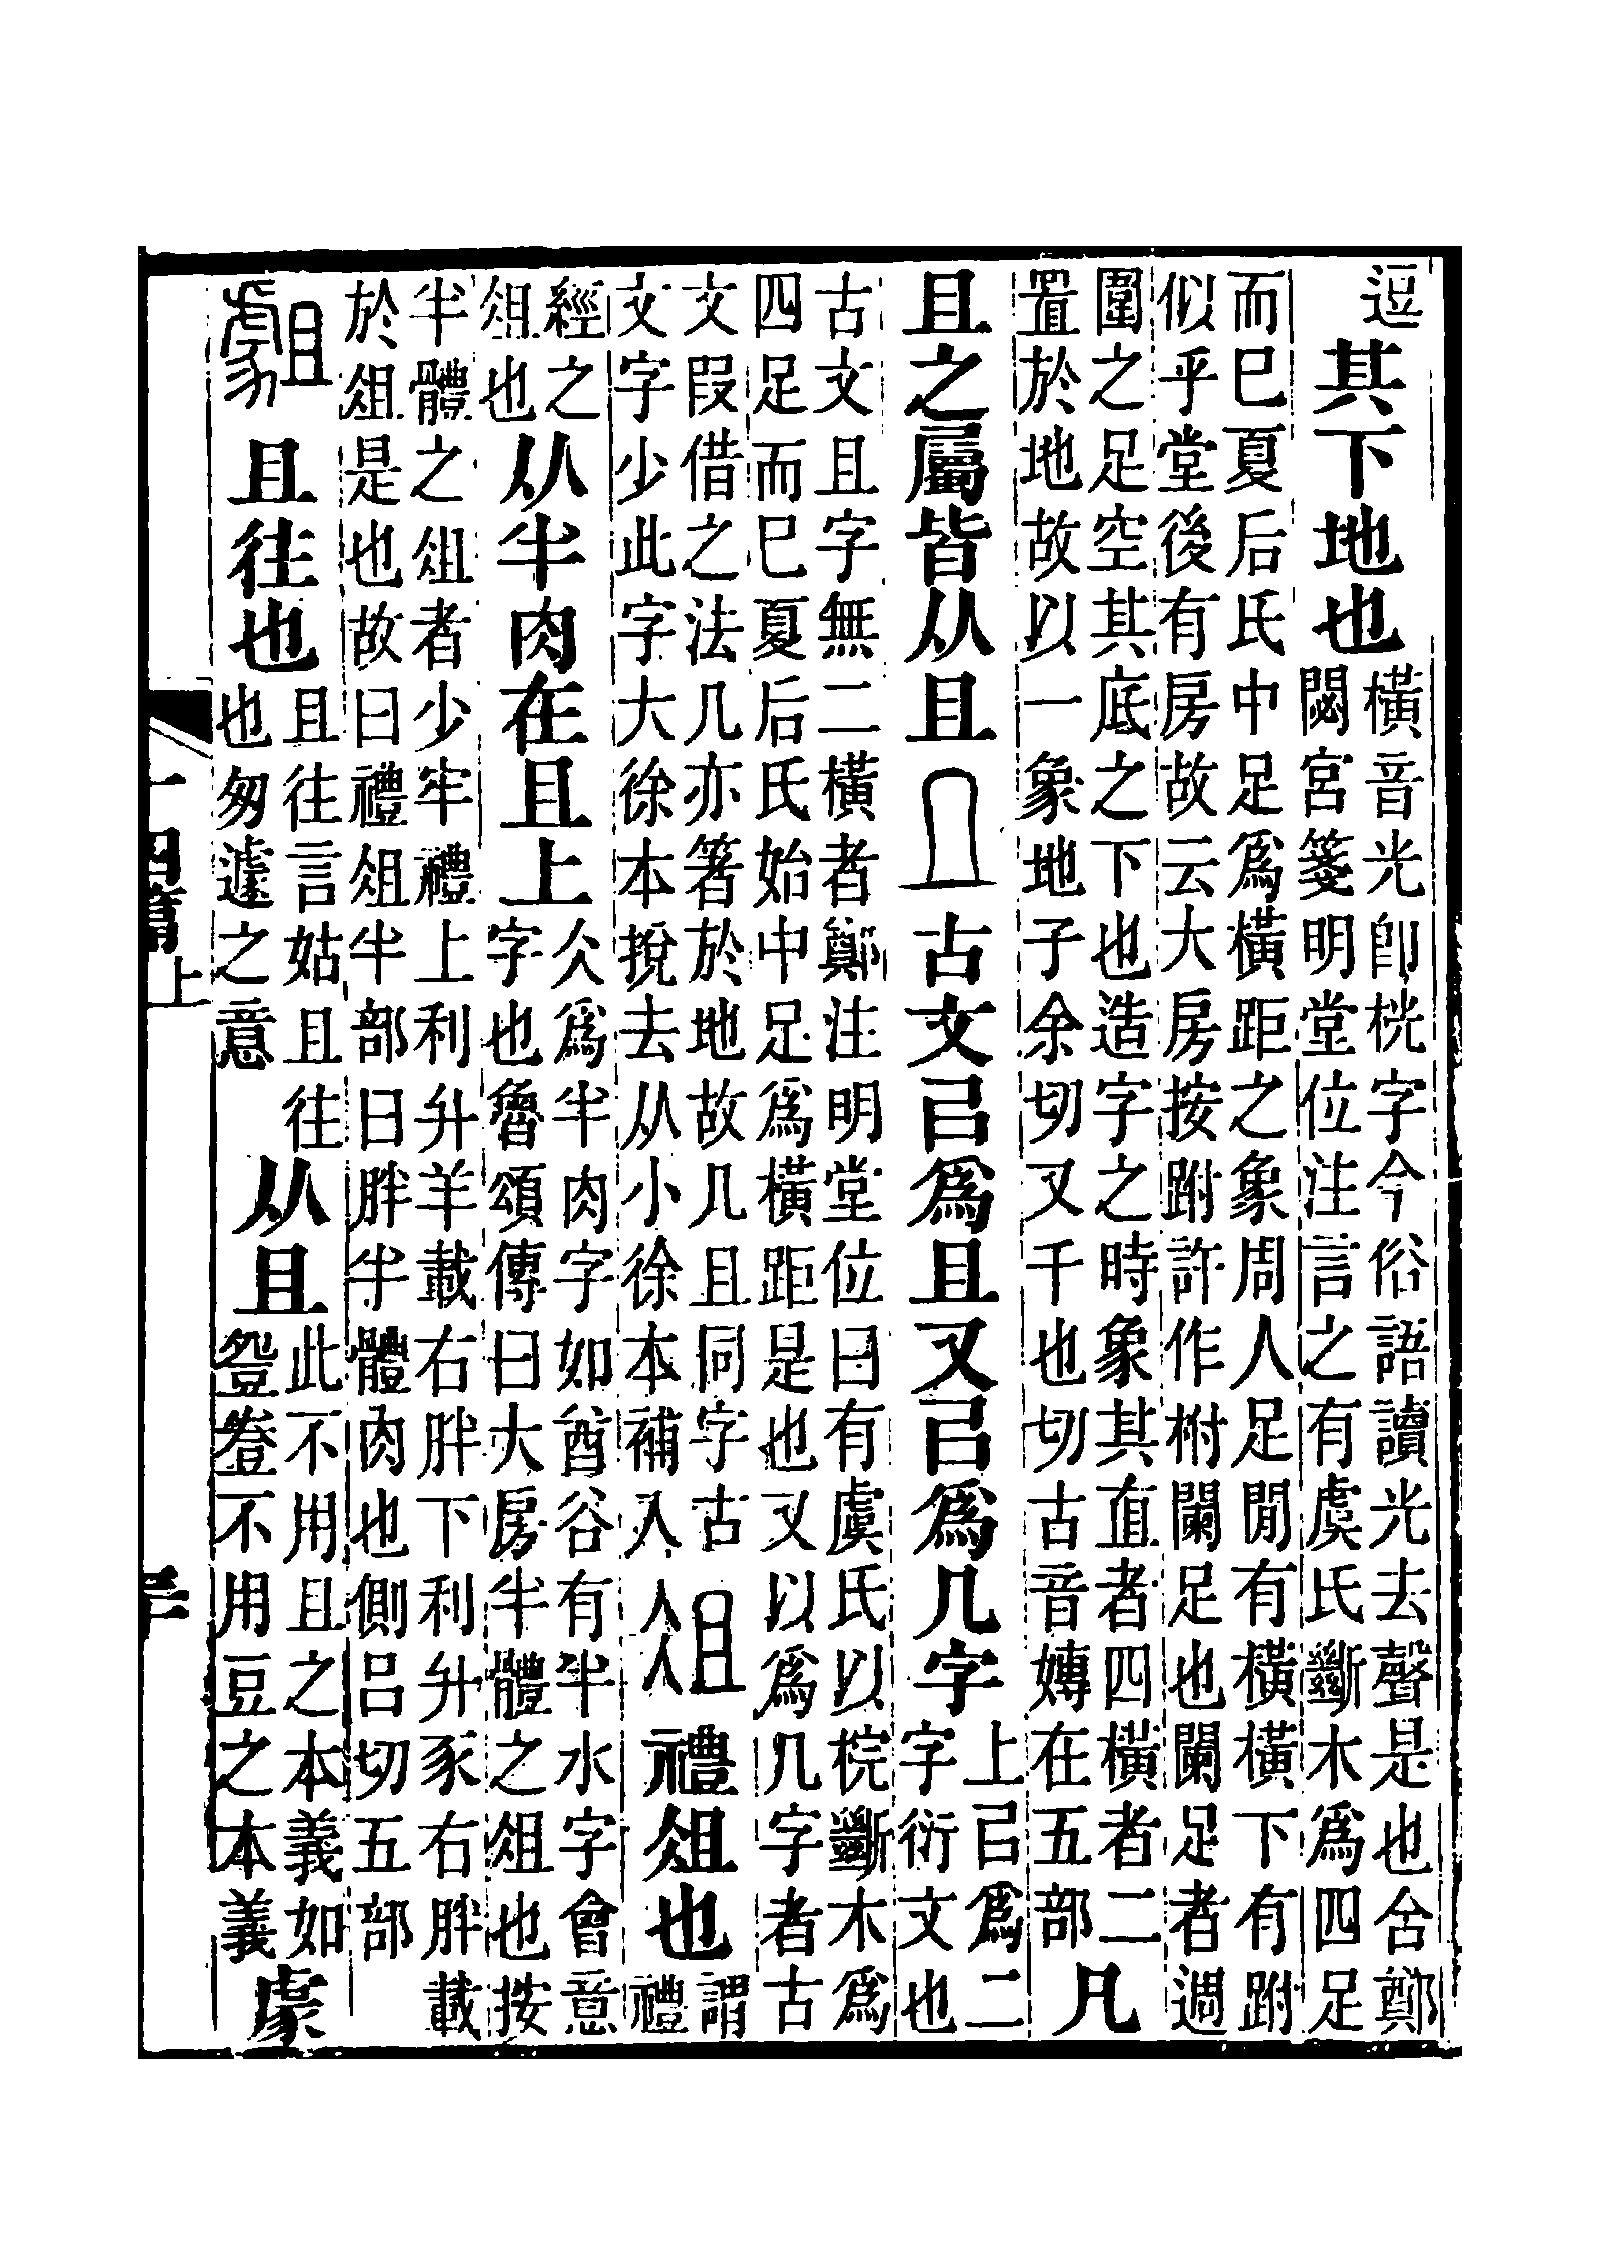 逗
其下地也
橫音光卽桄字今俗語讀光去聲是也舍鄭
閟宮箋明堂位注言之有虞氏斷木爲四足
而巳夏后氏中足爲橫距之象周人足閒有橫橫下有跗
似乎堂後有房故云大房按跗許作柎闌足也闌足者週
圍之足空其底之下也造字之時象其直者四橫者二
置於地故以一象地子余切又千也切古音嫥在五部
凡
且之屬皆从且
古文㠯爲且又㠯爲几字
上㠯爲二
字衍文也
古文且字無二橫者鄭注明堂位曰有虞氏以梡斷木爲
四足而巳夏后氏始中足爲橫距是也又以爲几字者古
文叚借之法几亦箸於地故几且同字古
文字少此字大徐本挩去从小徐本補入
俎
禮俎也
謂
禮
經之
俎也
从半肉在且上
仌爲半肉字如酋谷有半水字會意
字也魯頌傳曰大房半體之俎也按
半體之俎者少牢禮上利升羊載右胖下利升豕右胖載
於俎是也故曰禮俎半部曰胖半體肉也側呂切五部
且往也
且往言姑且往
也匆遽之意
从且
此不用且之本義如
不用豆之本義
豦
十四篇上
三十